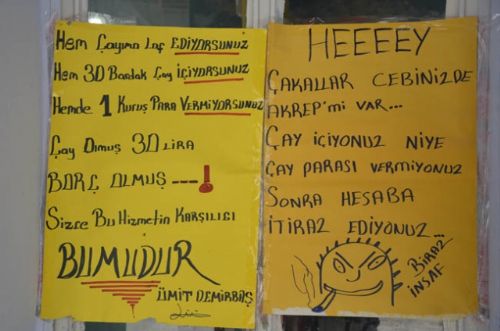 Hem Çayıma Laf EDİYORSUNUZ
Hem 30 Bardak Çay İÇİYORSUNUZ
Hemde 1 Kuruş Para VERMİYORSUNUZ
Çay Olmuş 30 LİRA
BORÇ OLMUŞ ---!
Sizce Bu Hizmetin KARŞILIGI
BUMUDUR
ÜMİT DEMİRBAŞ
HEEEEY
ÇAKALLAR CEBİNİZDE
AKREP'mi VAR...
ÇAY İÇİYONUZ NİYE
ÇAY PARASI VERMİYONUZ
SONRA HESABA
İTİRAZ EDİYONUZ...
BİRAZ
İNSAF